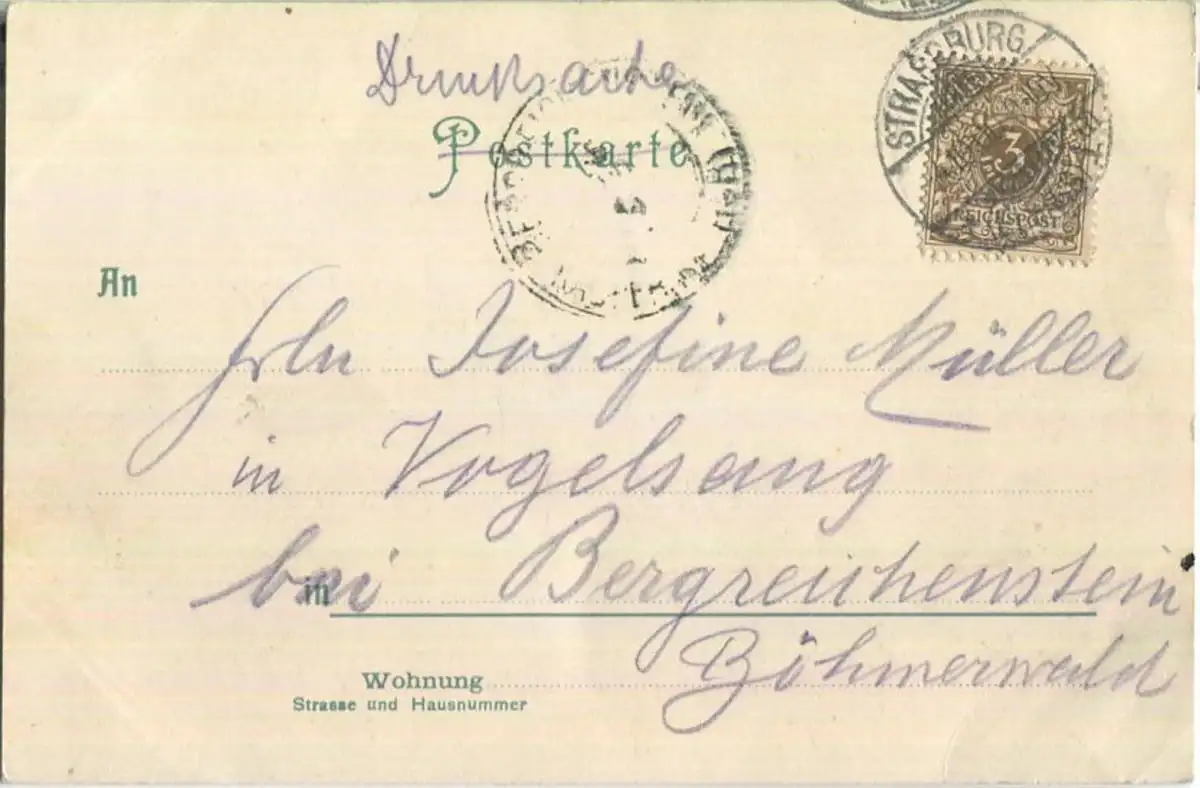 STRASSBURG
Drucksache
Postkarte
3
REICHSPOST
An
Frln Josefine Müller
in Vogelsang
bei Bergreichenstein
in
Böhmerwald
Wohnung
Strasse und Hausnummer